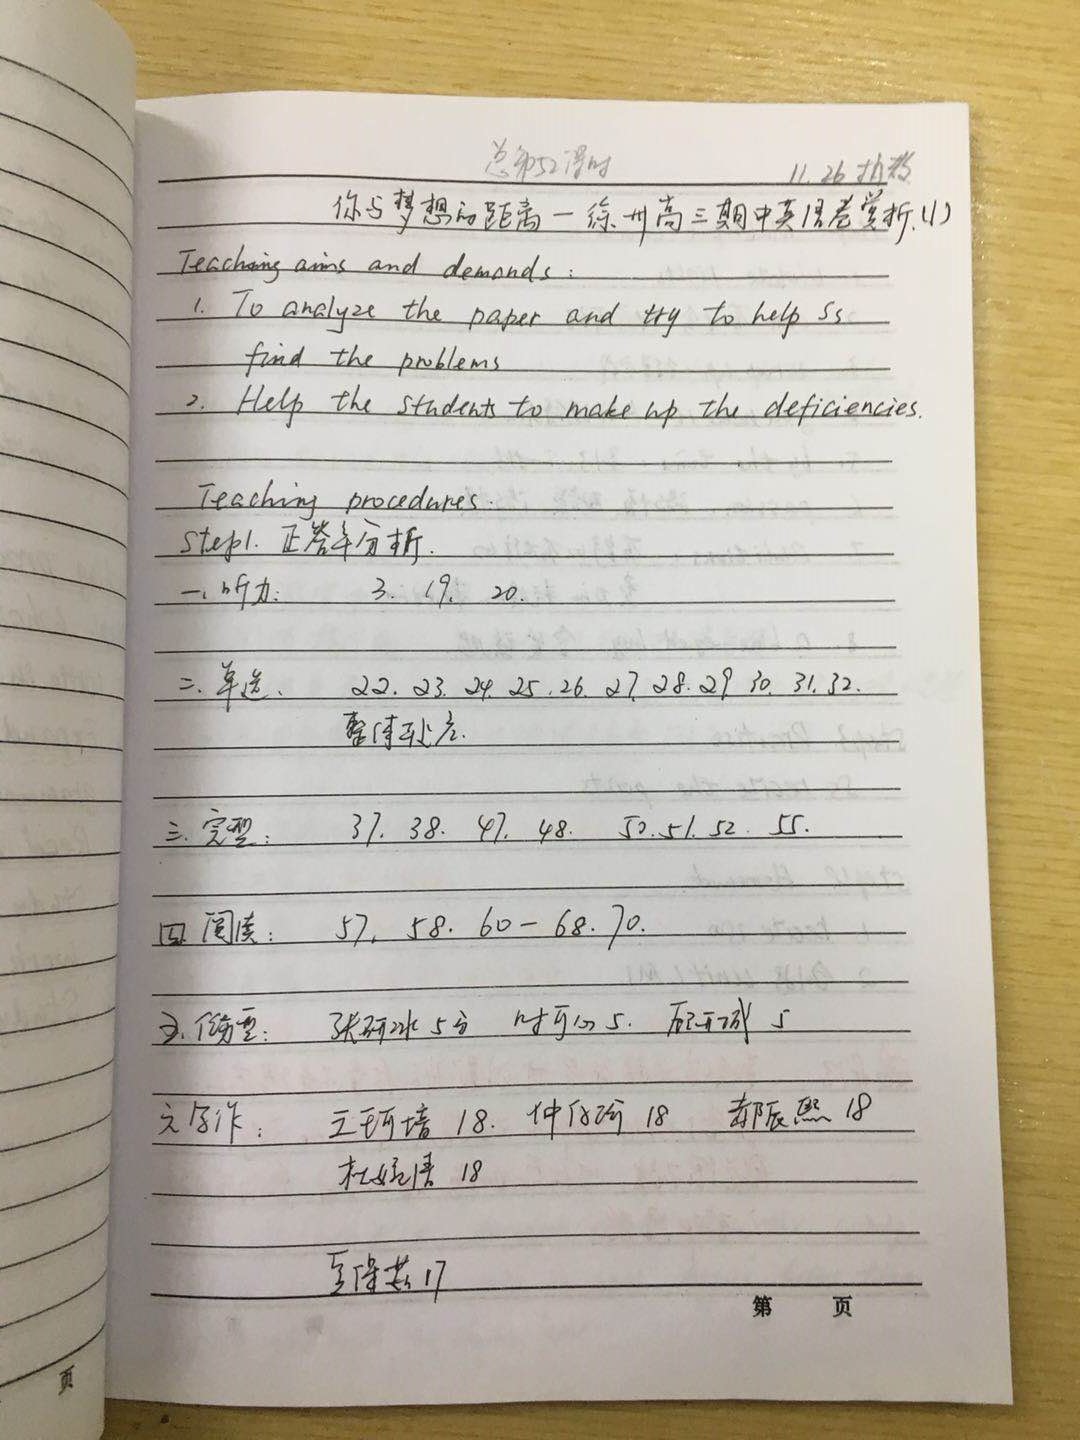 总第52课时 11.26
你与梦想的距离—徐州高三期中英语卷赏析.(1)
Teaching aims and demands:
1. To analyze the paper and try to help Ss
find the problems
2. Help the students to make up the deficiencies.
Teaching procedures.
Step1. 正答率分析.
一.听力: 3. 19. 20.
二.单选. 22. 23. 24. 25. 26. 27. 28. 29 30. 31. 32.
整体
三.完型: 37. 38. 47. 48. 50. 51. 52. 55.
四 阅读: 57, 58. 60—68. 70.
五. 张 5分 5. 5
六 写作: 王珂培 18. 仲 18 郝辰熙 18
杜 18
17
第 页
页